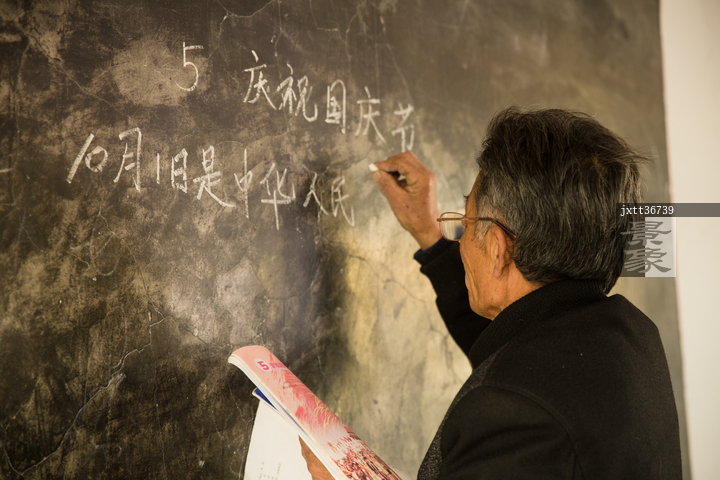 5 庆祝国庆节
10月1日是中华人民
jxtt36739
景象
5